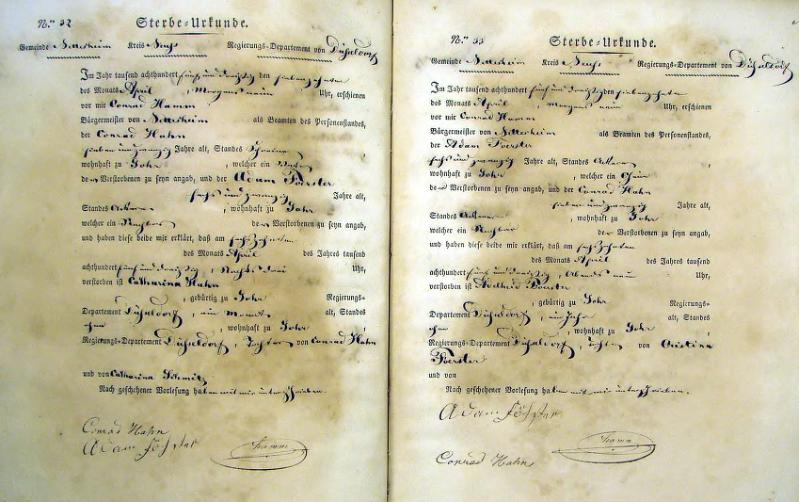 N.ro 32
Sterbe-Urkunde.
Gemeinde Nettesheim Kreis Neuss Regierungs-Departement von Düsseldorf
Im Jahr tausend achthundert fünf und dreißig den siebenzehnten
des Monats April, Morgens neun Uhr, erschienen
vor mir Conrad Hamm
Bürgermeister von Nettesheim als Beamten des Personenstandes,
der Conrad Hahn
sieben und zwanzig Jahre alt, Standes
wohnhaft zu Gohr, welcher ein Vater
der Verstorbenen zu seyn angab, und der Adam Foerster
sechs und zwanzig Jahre alt,
Standes Ackerer, wohnhaft zu Gohr
welcher ein Nachbar der Verstorbenen zu seyn angab,
und haben diese beide mir erklärt, daß am sechszehnten
des Monats April des Jahres tausend
achthundert fünf und dreißig, Nachts drei Uhr,
verstorben ist Catharina Hahn
, gebürtig zu Gohr Regierungs-
Departement Düsseldorf, ein Monat alt, Standes
ohne, wohnhaft zu Gohr,
Regierungs-Departement Düsseldorf, Tochter von Conrad Hahn
und von Catharina Schmitz
Nach geschehener Vorlesung haben mit mir unterschrieben.
Conrad Hahn
Adam Förster
Hamm
N.ro 33
Sterbe-Urkunde.
Gemeinde Nettesheim Kreis Neuss Regierungs-Departement von Düsseldorf
Im Jahr tausend achthundert fünf und dreißig den siebenzehnten
des Monats April, Morgens neun Uhr, erschienen
vor mir Conrad Hamm
Bürgermeister von Nettesheim als Beamten des Personenstandes,
der Adam Foerster
sechs und zwanzig Jahre alt, Standes Ackerer
wohnhaft zu Gohr, welcher ein Oheim
der Verstorbenen zu seyn angab, und der Conrad Hahn
sieben und zwanzig Jahre alt,
Standes Ackerer, wohnhaft zu Gohr
welcher ein Nachbar der Verstorbenen zu seyn angab,
und haben diese beide mir erklärt, daß am sechszehnten
des Monats April des Jahres tausend
achthundert fünf und dreißig, Abends neun Uhr,
verstorben ist Adelheid Foerster
, gebürtig zu Gohr Regierungs-
Departement Düsseldorf, ein Jahr alt, Standes
ohne, wohnhaft zu Gohr,
Regierungs-Departement Düsseldorf, Tochter von Cristina
Foerster
und von
Nach geschehener Vorlesung haben mit mir unterschrieben.
Adam Förster
Hamm
Conrad Hahn